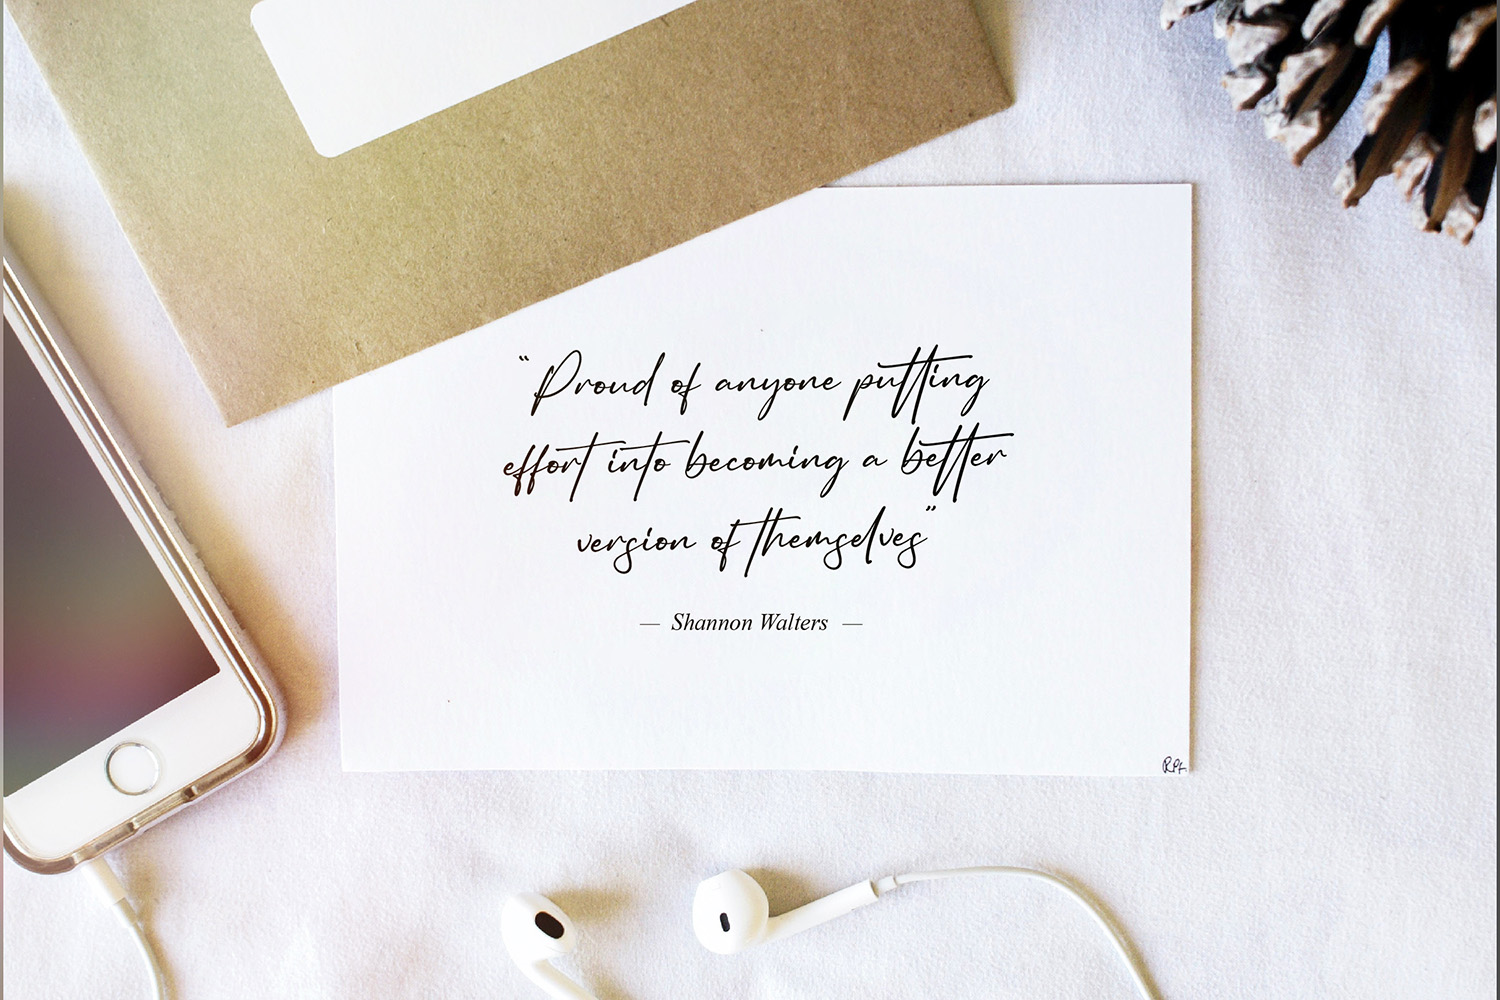 “Proud of anyone putting
effort into becoming a better
version of themselves”
— Shannon Walters —